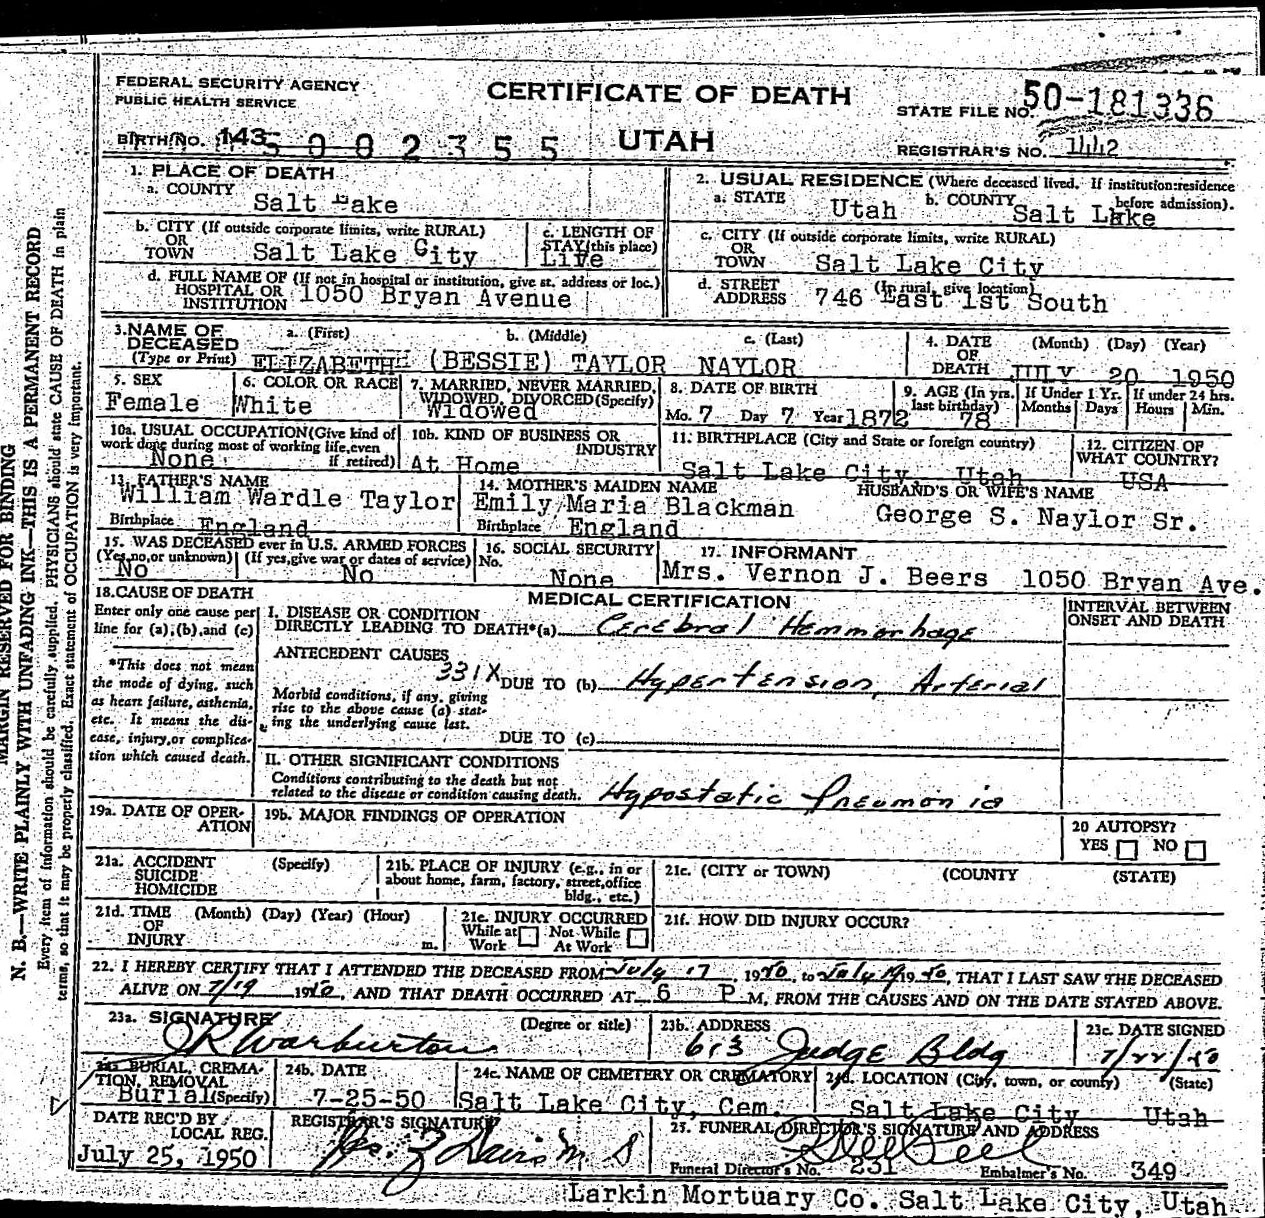 FEDERAL SECURITY AGENCY
PUBLIC HEALTH SERVICE
CERTIFICATE OF DEATH
STATE FILE NO. 50-181336
BIRTH NO. 143 5 0 0 2 3 5 5
UTAH
REGISTRAR'S NO. 1442
1. PLACE OF DEATH
a. COUNTY
Salt Lake
2. USUAL RESIDENCE (Where deceased lived. If institution: residence before admission).
a. STATE Utah b. COUNTY Salt Lake
b. CITY (If outside corporate limits, write RURAL)
OR
TOWN Salt Lake City
c. LENGTH OF
STAY (this place)
Life
c. CITY (If outside corporate limits, write RURAL)
OR
TOWN Salt Lake City
d. FULL NAME OF (If not in hospital or institution, give st. address or loc.)
HOSPITAL OR
INSTITUTION 1050 Bryan Avenue
d. STREET (If rural, give location)
ADDRESS 746 East 1st South
3. NAME OF DECEASED
(Type or Print)
a. (First) b. (Middle) c. (Last)
ELIZABETH (BESSIE) TAYLOR NAYLOR
4. DATE OF DEATH (Month) (Day) (Year)
JULY 20 1950
5. SEX
Female
6. COLOR OR RACE
White
7. MARRIED, NEVER MARRIED,
WIDOWED, DIVORCED (Specify)
Widowed
8. DATE OF BIRTH
Mo. 7 Day 7 Year 1872
9. AGE (In yrs. last birthday)
78
If Under 1 Yr.
Months Days
If under 24 hrs.
Hours Min.
10a. USUAL OCCUPATION (Give kind of
work done during most of working life, even
if retired)
None
10b. KIND OF BUSINESS OR
INDUSTRY
At Home
11. BIRTHPLACE (City and State or foreign country)
Salt Lake City, Utah
12. CITIZEN OF
WHAT COUNTRY?
USA
13. FATHER'S NAME
William Wardle Taylor
Birthplace England
14. MOTHER'S MAIDEN NAME
Emily Maria Blackman
Birthplace England
HUSBAND'S OR WIFE'S NAME
George S. Naylor Sr.
15. WAS DECEASED ever in U.S. ARMED FORCES
(Yes, no, or unknown) (If yes, give war or dates of service)
No No
16. SOCIAL SECURITY
No.
None
17. INFORMANT
Mrs. Vernon J. Beers 1050 Bryan Ave.
18. CAUSE OF DEATH
Enter only one cause per
line for (a), (b), and (c)
*This does not mean
the mode of dying, such
as heart failure, asthenia,
etc. It means the dis-
ease, injury, or complica-
tion which caused death.
MEDICAL CERTIFICATION
INTERVAL BETWEEN
ONSET AND DEATH
I. DISEASE OR CONDITION
DIRECTLY LEADING TO DEATH*(a) Cerebral Hemmorhage
ANTECEDENT CAUSES
331X DUE TO (b) Hypertension, Arterial
Morbid conditions, if any, giving
rise to the above cause (a) stat-
ing the underlying cause last.
DUE TO (c)
II. OTHER SIGNIFICANT CONDITIONS
Conditions contributing to the death but not
related to the disease or condition causing death. Hypostatic Pneumonia
19a. DATE OF OPER-
ATION
19b. MAJOR FINDINGS OF OPERATION
20 AUTOPSY?
YES NO
21a. ACCIDENT (Specify)
SUICIDE
HOMICIDE
21b. PLACE OF INJURY (e.g., in or
about home, farm, factory, street, office
bldg., etc.)
21c. (CITY or TOWN) (COUNTY (STATE)
21d. TIME (Month) (Day) (Year) (Hour)
OF
INJURY m.
21e. INJURY OCCURRED
While at Not While
Work At Work
21f. HOW DID INJURY OCCUR?
22. I HEREBY CERTIFY THAT I ATTENDED THE DECEASED FROM July 17, 1950, to July 19 1950, THAT I LAST SAW THE DECEASED
ALIVE ON 7/19 1950, AND THAT DEATH OCCURRED AT 6 P M, FROM THE CAUSES AND ON THE DATE STATED ABOVE.
23a. SIGNATURE (Degree or title)
Warburton
23b. ADDRESS
613 Judge Bldg
23c. DATE SIGNED
7/22/50
24a. BURIAL, CREMA-
TION, REMOVAL
Burial (Specify)
24b. DATE
7-25-50
24c. NAME OF CEMETERY OR CREMATORY
Salt Lake City, Cem.
24d. LOCATION (City, town, or county) (State)
Salt Lake City Utah
DATE REC'D BY
LOCAL REG.
July 25, 1950
REGISTRAR'S SIGNATURE
25. FUNERAL DIRECTOR'S SIGNATURE AND ADDRESS
Funeral Director's No. 231 Embalmer's No. 349
Larkin Mortuary Co. Salt Lake City, Utah
MARGIN RESERVED FOR BINDING
N. B.—WRITE PLAINLY WITH UNFADING INK—THIS IS A PERMANENT RECORD
Every item of information should be carefully supplied. PHYSICIANS should state CAUSE OF DEATH in plain
terms, so that it may be properly classified. Exact statement of OCCUPATION is very important.